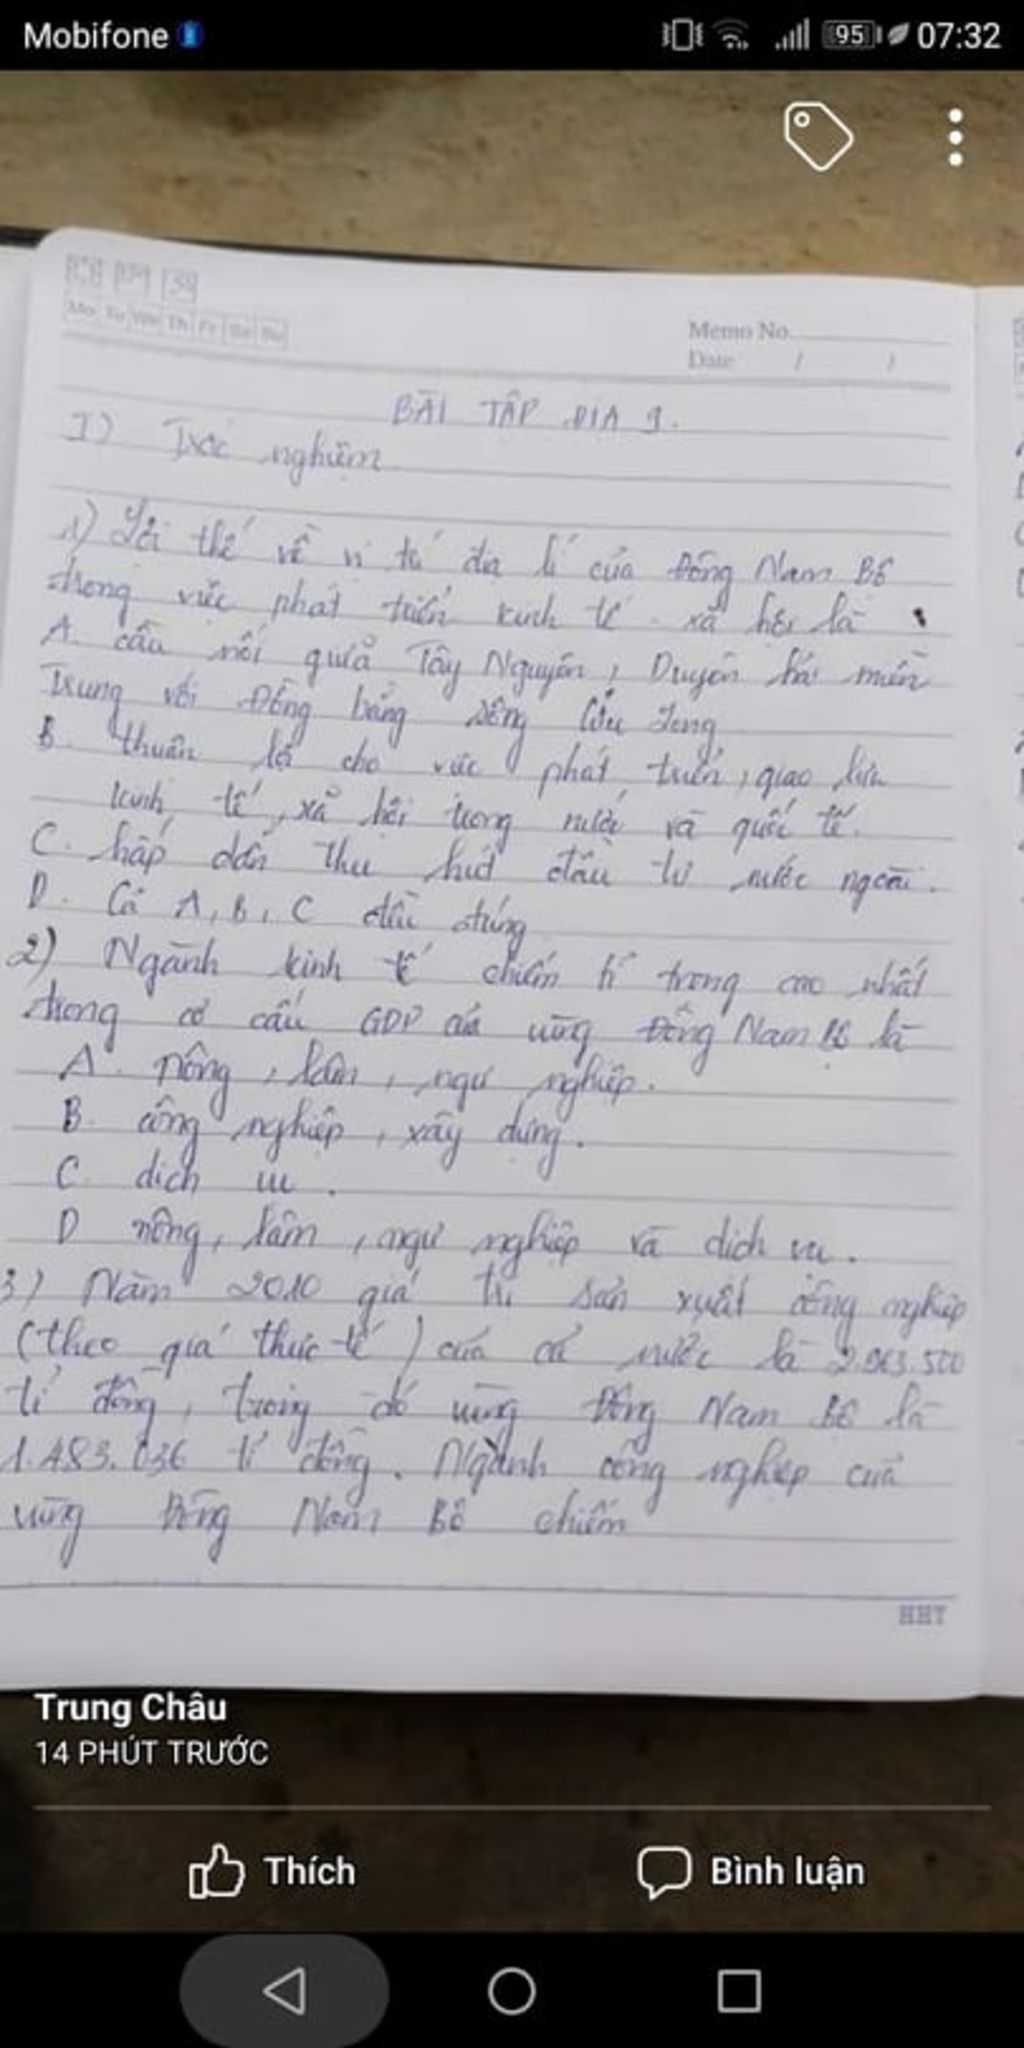 Mobifone
95 07:32
Mo Tu We Th Fr Sa Su
Memo No.
Date / /
BÀI TẬP ĐỊA 9.
I) Trắc nghiệm
1) Lợi thế về vị trí địa lí của Đông Nam Bộ
trong việc phát triển kinh tế - xã hội là
A. cầu nối giữa Tây Nguyên, Duyên hải miền
Trung với Đồng bằng sông Cửu Long
B. thuận lợi cho việc phát triển, giao lưu
kinh tế, xã hội trong nước và quốc tế.
C. hấp dẫn thu hút đầu tư nước ngoài.
D. Cả A, B, C đều đúng
2) Ngành kinh tế chiếm tỉ trọng cao nhất
trong cơ cấu GDP của vùng Đông Nam Bộ là
A. nông, lâm, ngư nghiệp.
B. công nghiệp, xây dựng.
C. dịch vụ.
D nông, lâm, ngư nghiệp và dịch vụ.
3) Năm 2010 giá trị sản xuất công nghiệp
(theo giá thực tế) của cả nước là 2.963.500
tỉ đồng, trong đó vùng Đông Nam Bộ là
1.483.036 tỉ đồng. Ngành công nghiệp của
vùng Đông Nam Bộ chiếm
HHT
Trung Châu
14 PHÚT TRƯỚC
Thích
Bình luận